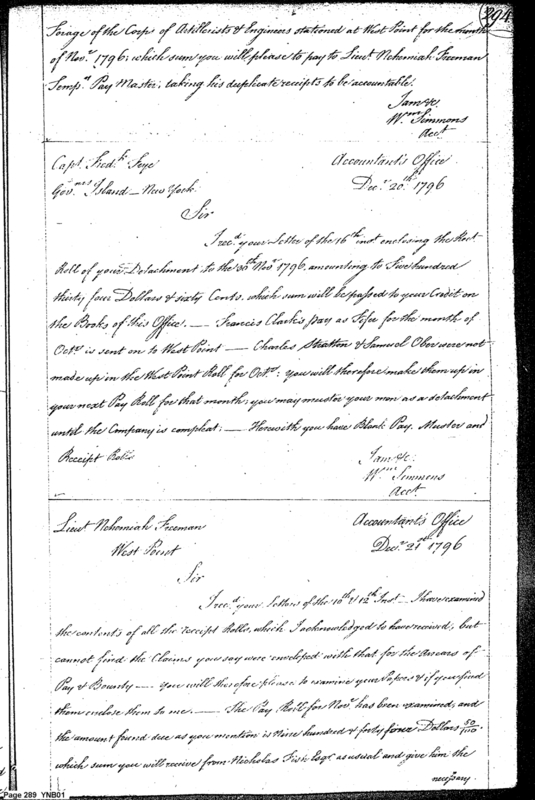 294
Forage of the Corps of Artillerists & Engineers stationed at West Point for the month
of Novr. 1796; which sum you will please to pay to Lieut. Nehemiah Freeman
Tempy. Pay Master, taking his duplicate receipts to be accountable.
I am &c.
Wm. Simmons
Acct.
Capt. Fredk. Frye
Govnrs. Island – New York
Accountant's Office
Decr. 20th. 1796
Sir
I recd. your Letter of the 16th inst. enclosing the Rect.
Roll of your Detachment to the 30th Novr. 1796, amounting to Five hundred
thirty four Dollars & sixty Cents. which sum will be passed to your Credit on
the Books of this Office. — Francis Clark's pay as Fifer for the month of
Octr. is sent on to West Point — Charles Stratton & Samuel Ober were not
made up in the West Point Roll for Octr: you will therefore make them up in
your next Pay Roll for that month, you may muster your men as a detachment
until the Company is compleat. — Herewith you have Blank Pay, Muster and
Receipt Rolls
I am &c.
Wm Simmons
Acct.
Lieut. Nehemiah Freeman
West Point
Accountant's Office
Decr. 21st. 1796
Sir
I recd. your Letters of the 10th & 12th Inst. — I have examined
the contents of all the receipt Rolls, which I acknowledged to have recieved, but
cannot find the Claims you say were enveloped with that for the Arrears of
Pay & Bounty — You will therefore please to examine your Papers & if you find
them enclose them to me. — The Pay Roll for Novr. has been examined, and
the amount found due as you mention is Nine hundred & forty Dollars 50/100
which sum you will receive from Nicholas Fish Esqr. as usual and give him the
necessary
Page 289 YNB01